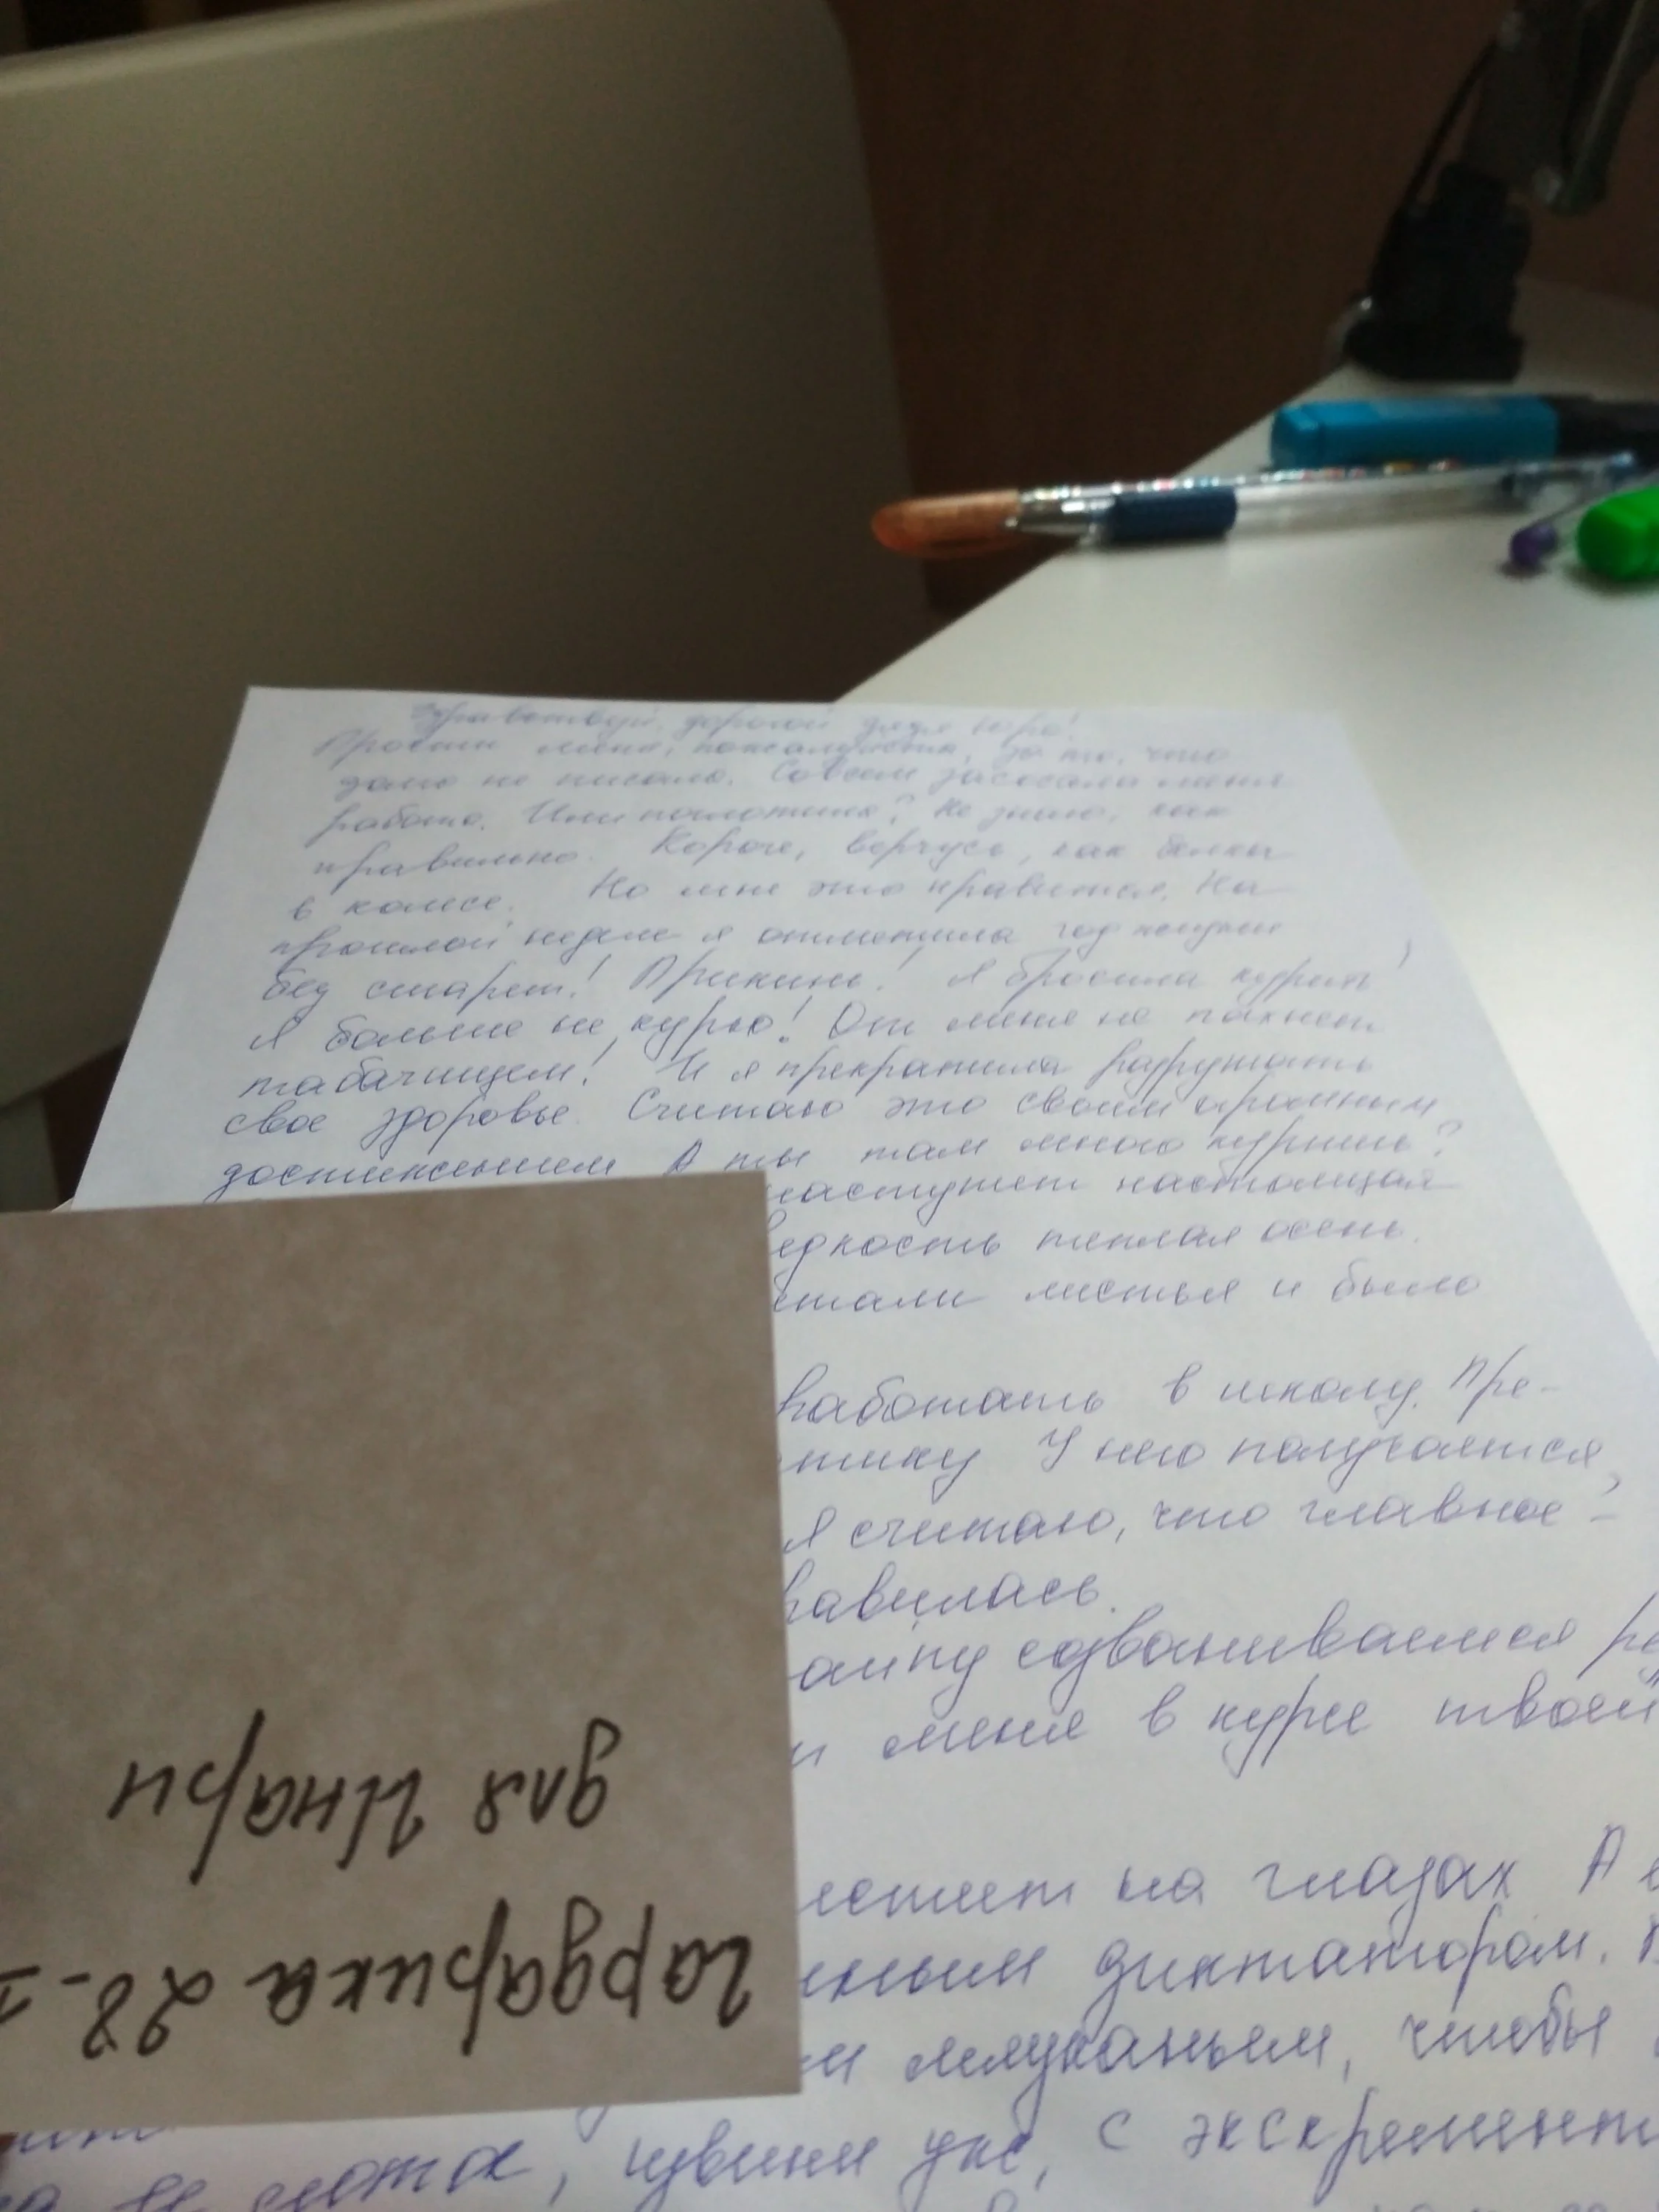 Здравствуй, дорогой дядя Юра!
Прости меня, пожалуйста, за то, что
долго не писала. Совсем засосала меня
работа. Или поглотила? Не знаю, как
правильно. Короче, верчусь, как белка
в колесе. Но мне это нравится. На
прошлой неделе я отметила год жизни
без сигарет! Прикинь! Я бросила курить!
Я больше не курю! От меня не пахнет
табачищем! И я прекратила разрушать
свое здоровье. Считаю это своим огромным
достижением. А ты там много куришь?
наступает настоящая
редкость теплая осень.
листья и было
работать в школу. Пре-
У него получается,
Я считаю, что главное -
сдваиваемся
меня в курсе твоей
на глазах. А
диктатором.
мяуканьем, чтобы
, извини уж, с экскремент
Гардарика 28-1
для Инари